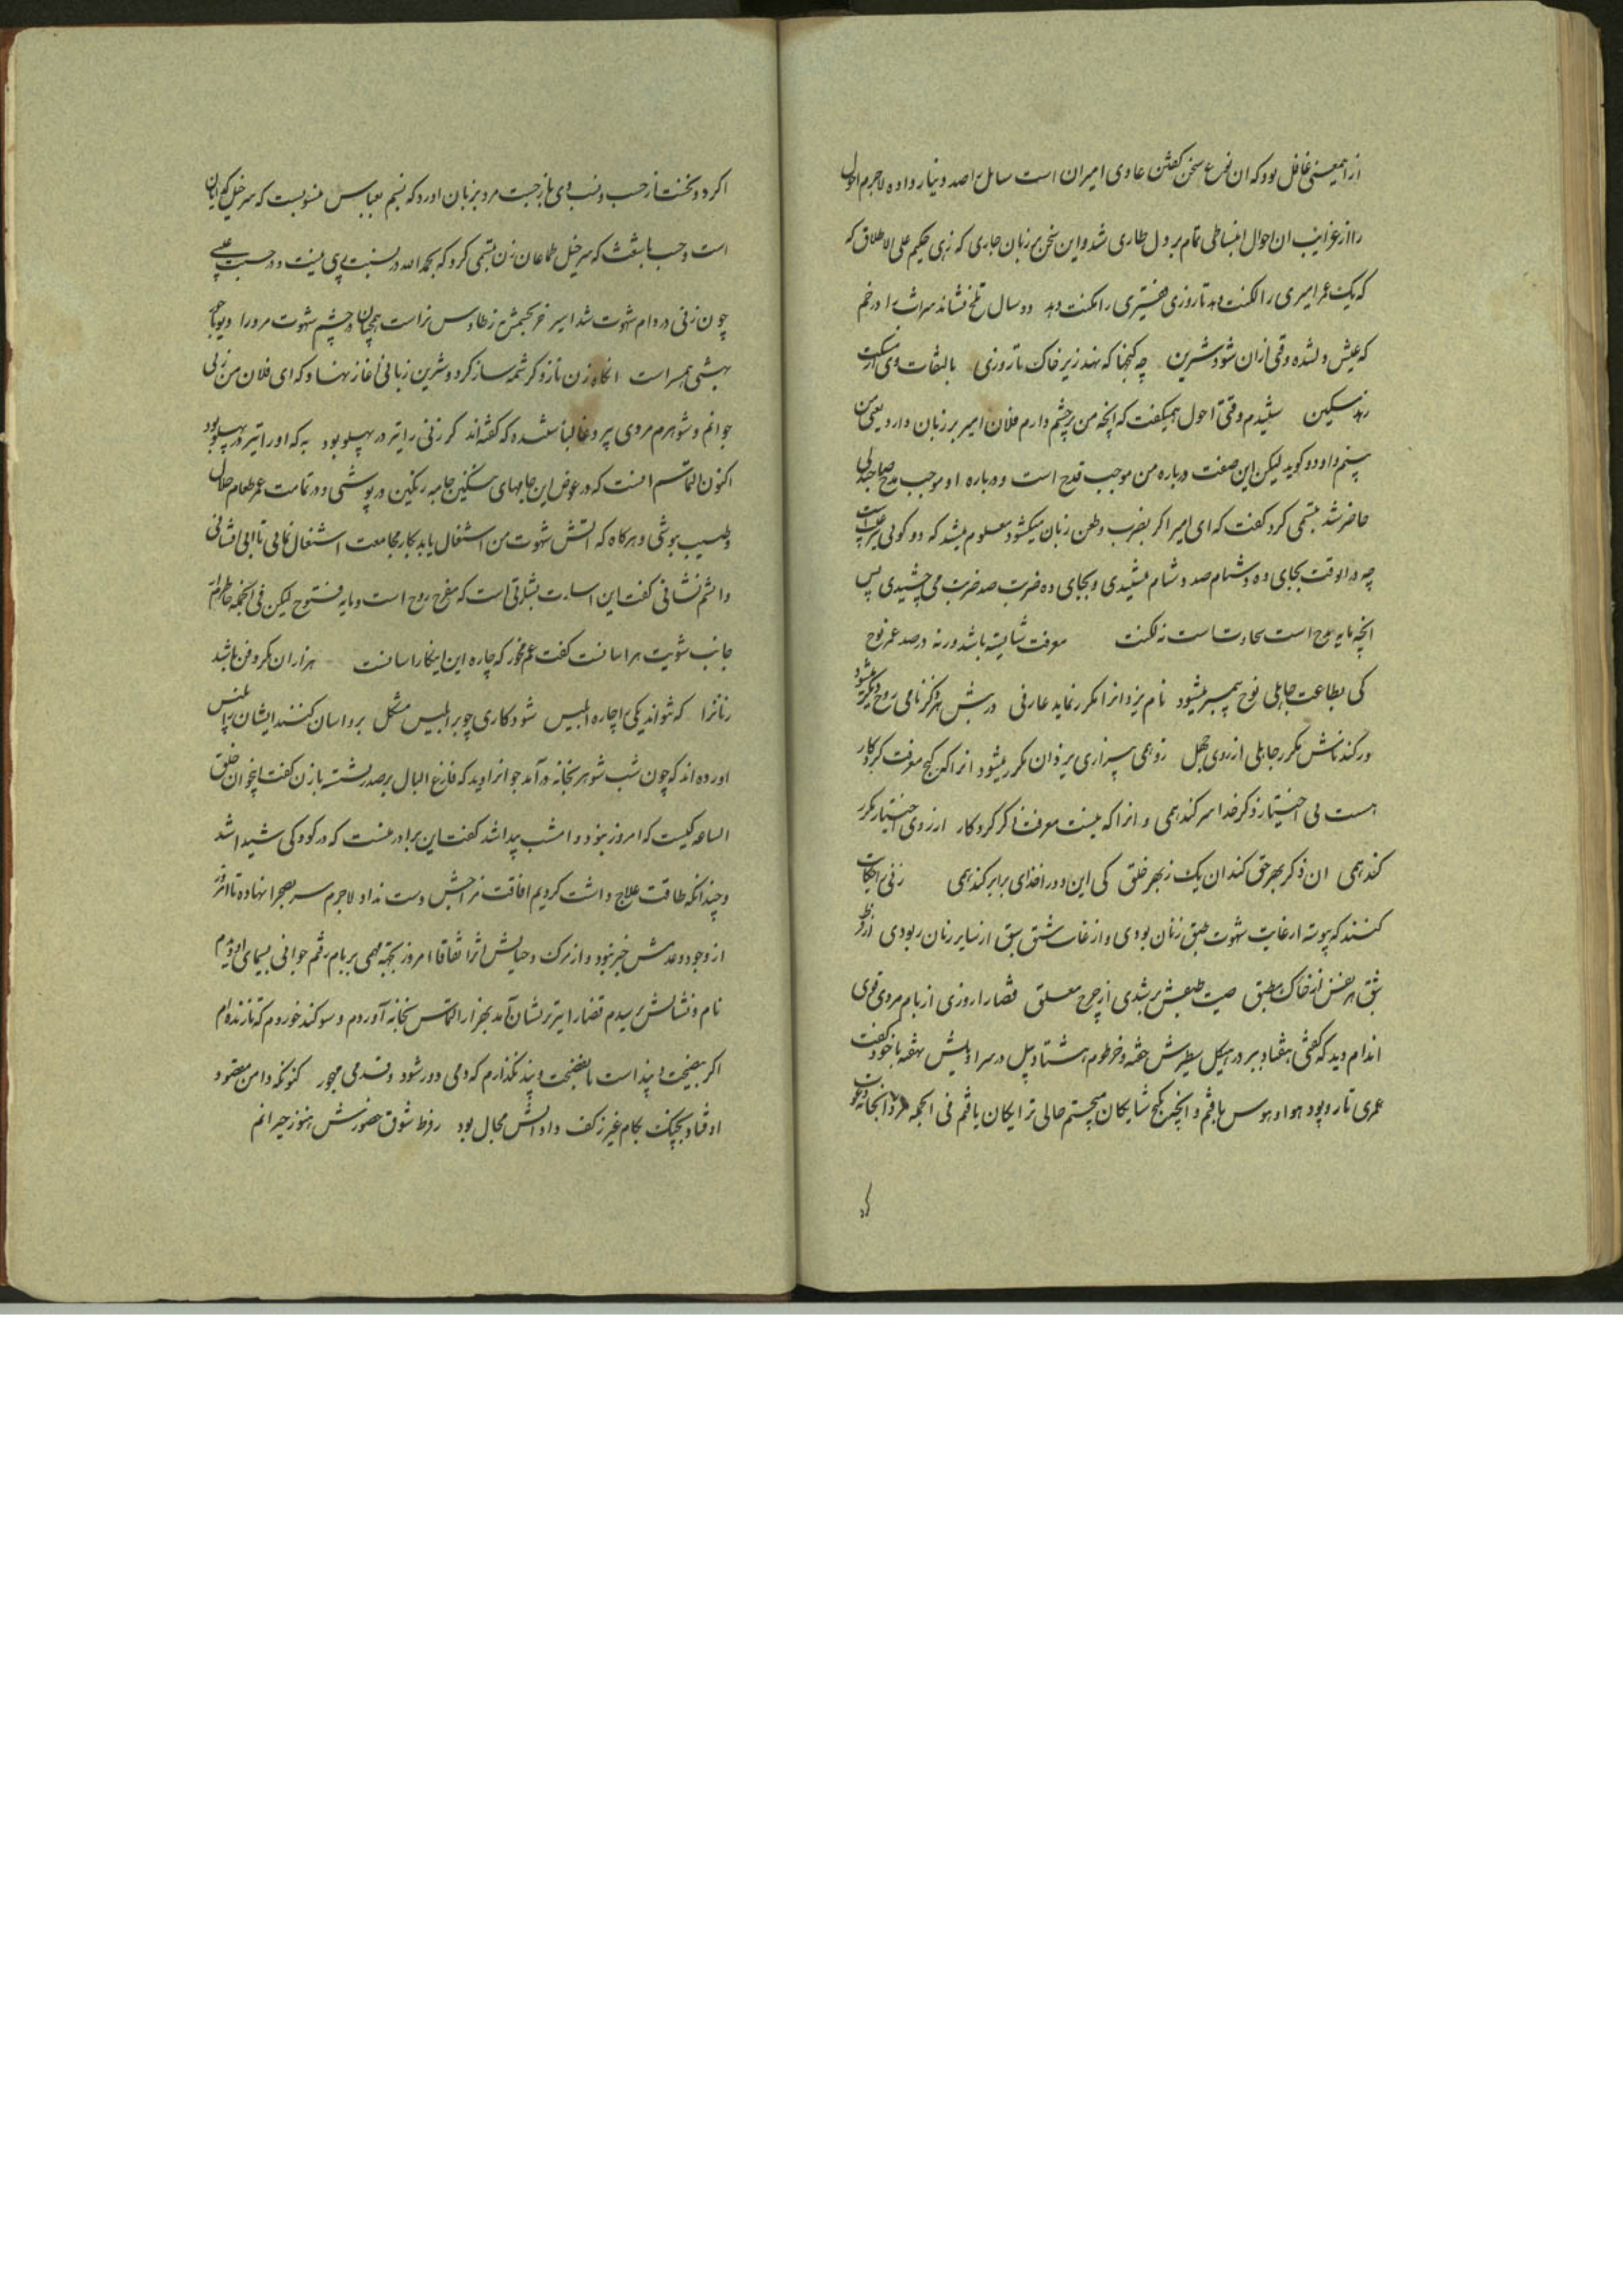 ازاهمیعنی غافل بود که ان نوع سخن گفتن عادی امیران است سایل را صد دینار داده لاجرم احول
را از غرایب ان احوال انبساطی تمام بر دل طاری شد و این سخن بر زبان جاری که زهی حکیم علی الاطلاق که
که یک عمر امیری را لکنت دهد تا روزی فقیری را مکنت دهد دو سال تلخ نشاند شراب را در خم
که عیش دلشده وقتی ازان شود شیرین چه گنجها که نهد زیر خاک تا روزی بالتفات وی از
رهد مسکین شنیدم وقتی احول همیگفت که انچه من بر چشم دارم فلان امیر بر زبان دارد یعنی من
بینم و او دو گوید لیکن این صفت درباره من موجب قدح است و درباره او موجب مدح صاحبدلی
حاضر شد تبسمی کرد گفت که ای امیر اگر بضرب و طعن زبان میگشود معلوم میشد که دو گویی
چه در انوقت بجای ده دشنام صد دشنام میشنیدی و بجای ده ضربت صد ضربت می چشیدی پس
انچه مایه مدح است سخاوتست نه لکنت معرفت شایسته باشد ورنه در صد عمر نوح
کی بطاعت جاهلی نوح پیمبر میشود نام یزدانرا مکرر نماید عارفی در تنش هر ذکر نامی روح دیگر میشود
ور کند نامش مکرر جاهلی از روی جهل زو همی بیزاری یزدان مکرر میشود انرا که گنج معرفت کردگار
هست بی اختیار ذکر خدا سر کند همی و انرا که نیست معرفت ذکر کردگار از روی اختیار مکرر
کند همی ان ذکر بهر حق کند ان یک ز بهر خلق کی این دو را خدای برابر کند همی زنی را حکایت
کنند که پیوسته از غایت شهوت طبق زنان بودی و از غایت شبق سبق از سایر زنان ربودی از فرط
شبق هر نفس از خاک مطبق صیت طبقش بر شدی از چرخ معلق قضارا روزی از بام مردی قوی
اندام دید که گفتی هفتاد ببر در هیکل سطبرش خفته و خرطوم هشتاد پیل در سراویلش نهفته با خود گفت
عمری تار و پود هوا و هوس بافتم و انچه گنج شایگان میجستم حالی رایگان یافتم فی الجمله مرد را بخانه دعوت
کرد
اکرد و نخست از حسب و نسب وی باز جست مرد بر زبان اورد که نسبم بعباس منسوبست که سر خیل گدایان
است و حسب با شعث که سر خیل طماعان زن تبسمی کرد که بحمدالله در نسبت ریبی نیست و در حسبت عیبی
چون زنی در دام شهوت شد اسیر خر بچشمش ز طاوس نر است همچنان در چشم شهوت مرد را دیو با حور
بهشتی همسر است انگاه زن ناز و کرشمه ساز کرد و شیرین زبانی آغاز نهاد که ای فلان من زنی
جوانم و شوهرم مردی پیر و غالبا نشنیده که گفته اند که زنی را تیر در پهلو بود به که او را پیر در پهلو بود
اکنون التماسم انست که در عوض این جامهای سنگین جامه رنگین در پوشی و در تمامت عمر طعام حلال
و طیب بنوشی و هرگاه که اتش شهوت من اشتعال یابد بکار مجامعت اشتغال نمایی تا ابی افشانی
و اتشم نشانی گفت این اسارت بشارتی است که مفرح روح است و مایه فتوح لیکن فی الجمله خاطرم از
جانب شویت هراسانست گفت غم مخور که چاره این اینکار اسانست هزاران مکر و فن باشد
زنانرا که نتواند یکی را چاره ابلیس شود کاری چو بر ابلیس مشکل برو اسان کنند ایشان بتلبیس
اورده اند که چون شب شوهر بخانه در آمد جوانرا دید که فارغ البال بر صدر نشسته با زن گفت
الساعه کیست که امروز نبود و امشب پیدا شد گفت این برادر منست که در کودکی شیدا شد
و چندانکه طاقت علاج داشت کردیم افاقت مزاجش دست نداد لاجرم سر بصحرا نهاده تا امروز
از وجود و عدمش خبر نبود و از مرگ و حیاتش اثر اتفاقا امروز بجهته مهمی بر بام رفتم جوانی بسیمای او دیدم
نام و نشانش پرسیدم قضارا تیر بر نشان آمد بهزار التماس بخانه آوردم و سوگند خوردم که تا زنده ام
اگر بنصیحت و پند است یا بفضیحت و بند نگذارم که دمی دور شود و قدمی مهجور کنونکه دامن مقصود
اوفتاد بچنگ بکام غیر ز کف دادنش محال بود ز فرط شوق حضورش هنوز حیرانم